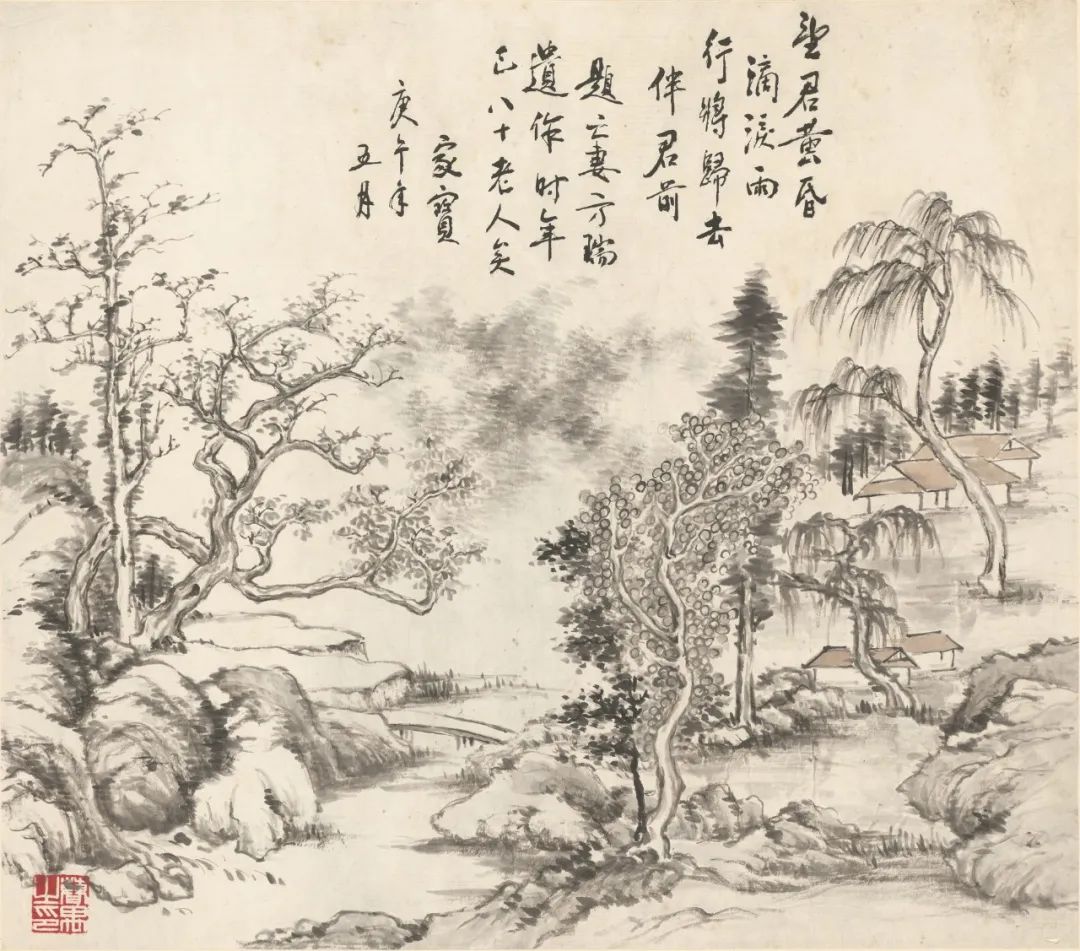 望君黄昏
滴淚雨
行將歸去
伴君前
題亡妻方瑞
遺作时年
已八十老人矣
家寶
庚午年
五月
曹禺之印